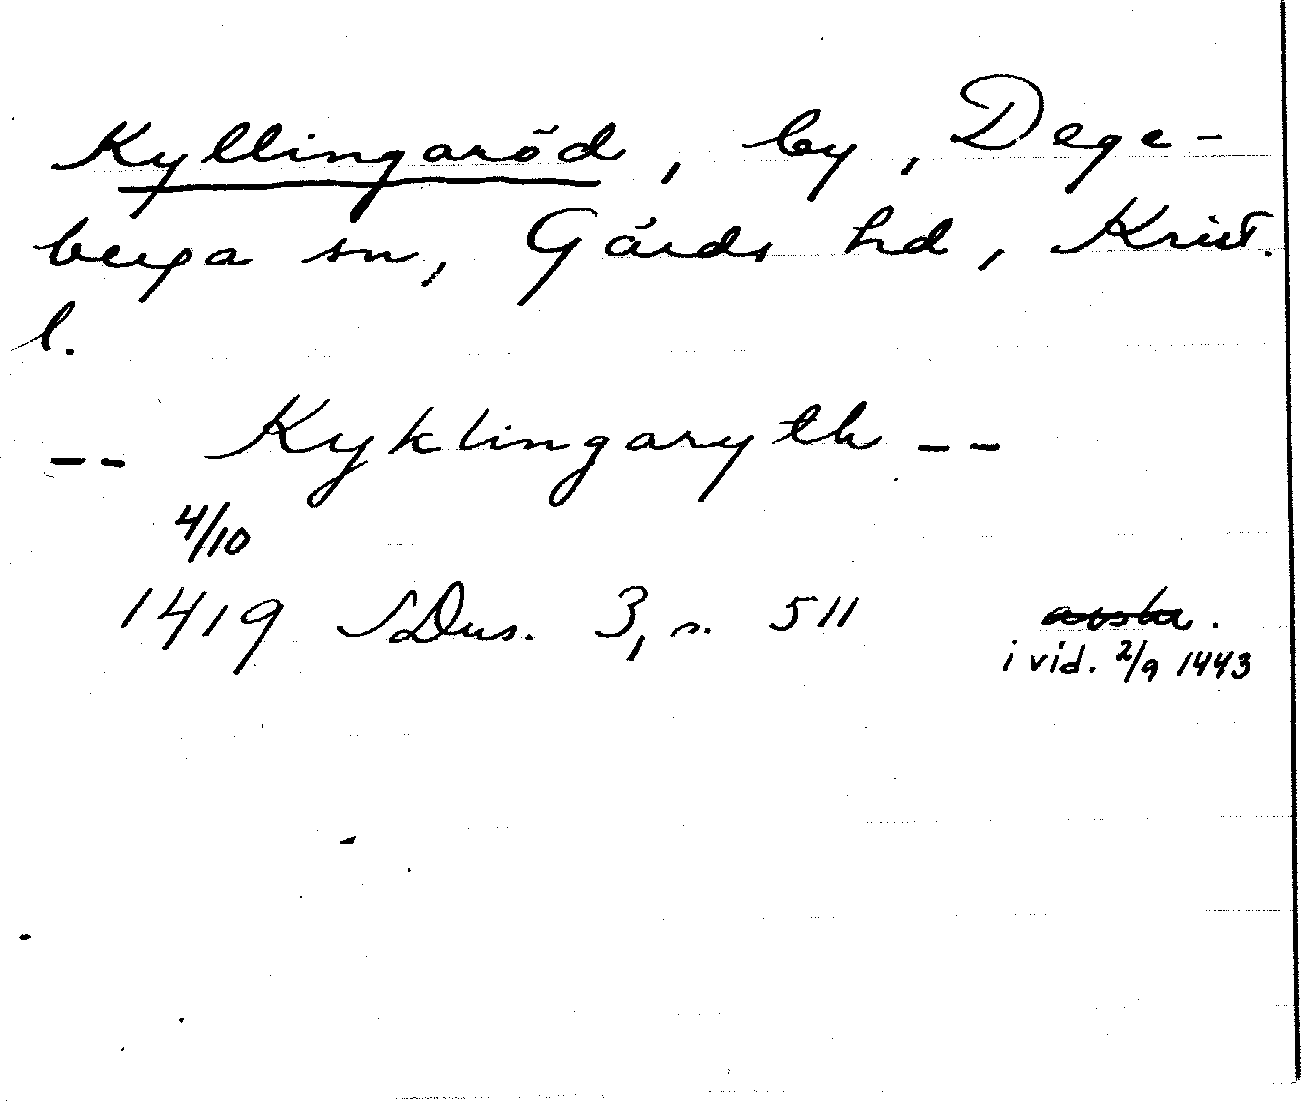 Kyllingaröd, by, Dege-
berga sn, Gärds hd, Krist.
l.
-- Kyklingaryth --
4/10
1419 SDns. 3, s. 511 avskr.
i vid. 2/9 1443